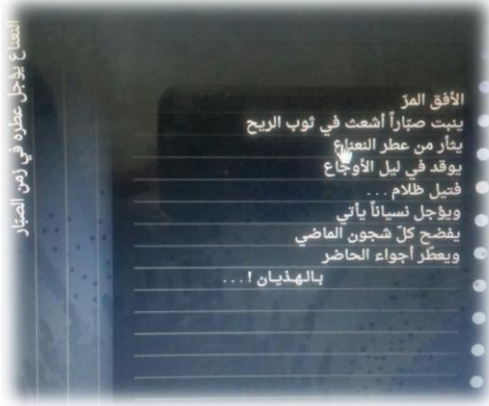 النعناع يؤجل عطره في زمن الصبّار
الأفق المرّ
ينبت صبّاراً أشعث في ثوب الريح
يثأر من عطر النعناع
يوقد في ليل الأوجاع
فتيل ظلام ...
ويؤجل نسياناً يأتي
يفضح كلّ شجون الماضي
ويعطّر أجواء الحاضر
بالهذيان ! ...